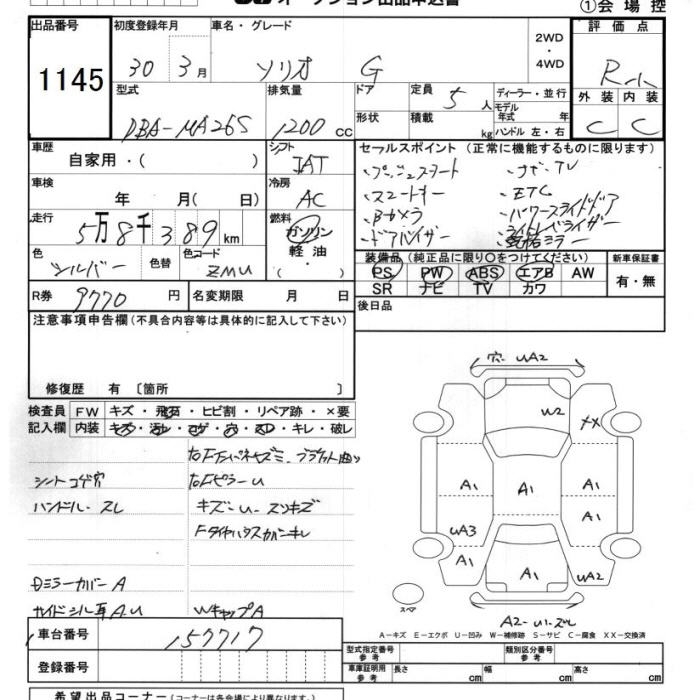 オークション出品申込書
①会場控
出品番号
1145
初度登録年月
30 3月
車名・グレード
ソリオ G
2WD・4WD
評価点
外装 内装
C C
型式
DBA-MA26S
排気量
1200 cc
ドア
形状
定員
5人
積載
kg
ディーラー・並行
モデル年式 年
ハンドル 左・右
車歴
自家用・( )
シフト
IAT
セールスポイント (正常に機能するものに限ります)
・プッシュスタート ・ナビ・TV
・スマートキー ・ETC
・Bカメラ ・パワースライドドア
・ドアバイザー
車検
年 月( 日)
冷房
AC
走行
5万8千389km
燃料
ガソリン
軽油
・( )
色
シルバー
色替
色コード
ZMU
装備品 (純正品に限り○をつけてください)
PS PW ABS エアB AW
SR ナビ TV カワ
新車保証書
有・無
R券
9770円
名変期限 月 日
後日品
注意事項申告欄 (不具合内容等は具体的に記入して下さい)
修復歴 有 〔箇所 〕
検査員記入欄
FW キズ・飛石・ヒビ割・リペア跡・×要
内装 キズ・汚レ・コゲ・穴・スレ・キレ・破レ
シートコゲ穴
ハンドル・スレ
右FピラーU
キズ・U・スリキズ
ミラーカバーA
WキャップA
穴 UA2
W2
A1
A1
A1
A1
UA3
A1
A1
UA2
スペア
A-キズ E-エクボ U-凹み W-補修跡 S-サビ C-腐食 XX-交換済
車台番号
157717
登録番号
型式指定番号 参考
類別区分番号 参考
車庫証明用 参考
長さ cm
幅 cm
高さ cm
希望出品コーナー